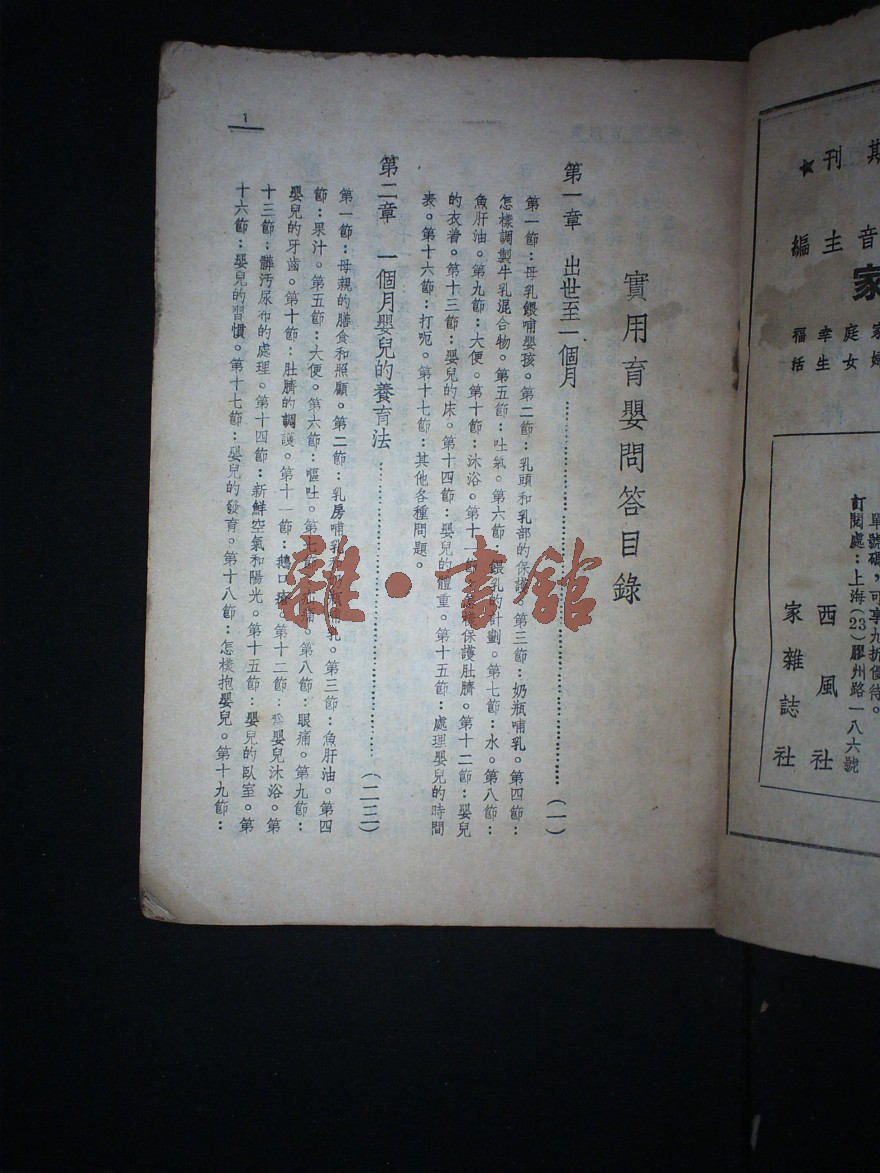 期刊★
音主編
家
家庭幸福
婦女生活
單號碼，可享九折優待。
訂閱處：上海(23)膠州路一八六號
西風社
家雜誌社
實用育嬰問答目錄
第一章 出世至一個月……(一)
第一節：母乳餵哺嬰孩。第二節：乳頭和乳部的保護。第三節：奶瓶哺乳。第四節：
怎樣調製牛乳混合物。第五節：吐氣。第六節：餵乳的計劃。第七節：水。第八節：
魚肝油。第九節：大便。第十節：沐浴。第十一節：怎樣保護肚臍。第十二節：嬰兒
的衣着。第十三節：嬰兒的床。第十四節：嬰兒的體重。第十五節：處理嬰兒的時間
表。第十六節：打呃。第十七節：其他各種問題。
第二章 一個月嬰兒的養育法……(二三)
第一節：母親的膳食和照顧。第二節：乳房哺乳和奶瓶哺乳。第三節：魚肝油。第四
節：果汁。第五節：大便。第六節：嘔吐。第七節：肚痛。第八節：眼痛。第九節：
嬰兒的牙齒。第十節：肚臍的調護。第十一節：鵝口瘡。第十二節：嬰兒沐浴。第
十三節：髒汚尿布的處理。第十四節：新鮮空氣和陽光。第十五節：嬰兒的臥室。第
十六節：嬰兒的習慣。第十七節：嬰兒的發育。第十八節：怎樣抱嬰兒。第十九節：
1
雜·書館